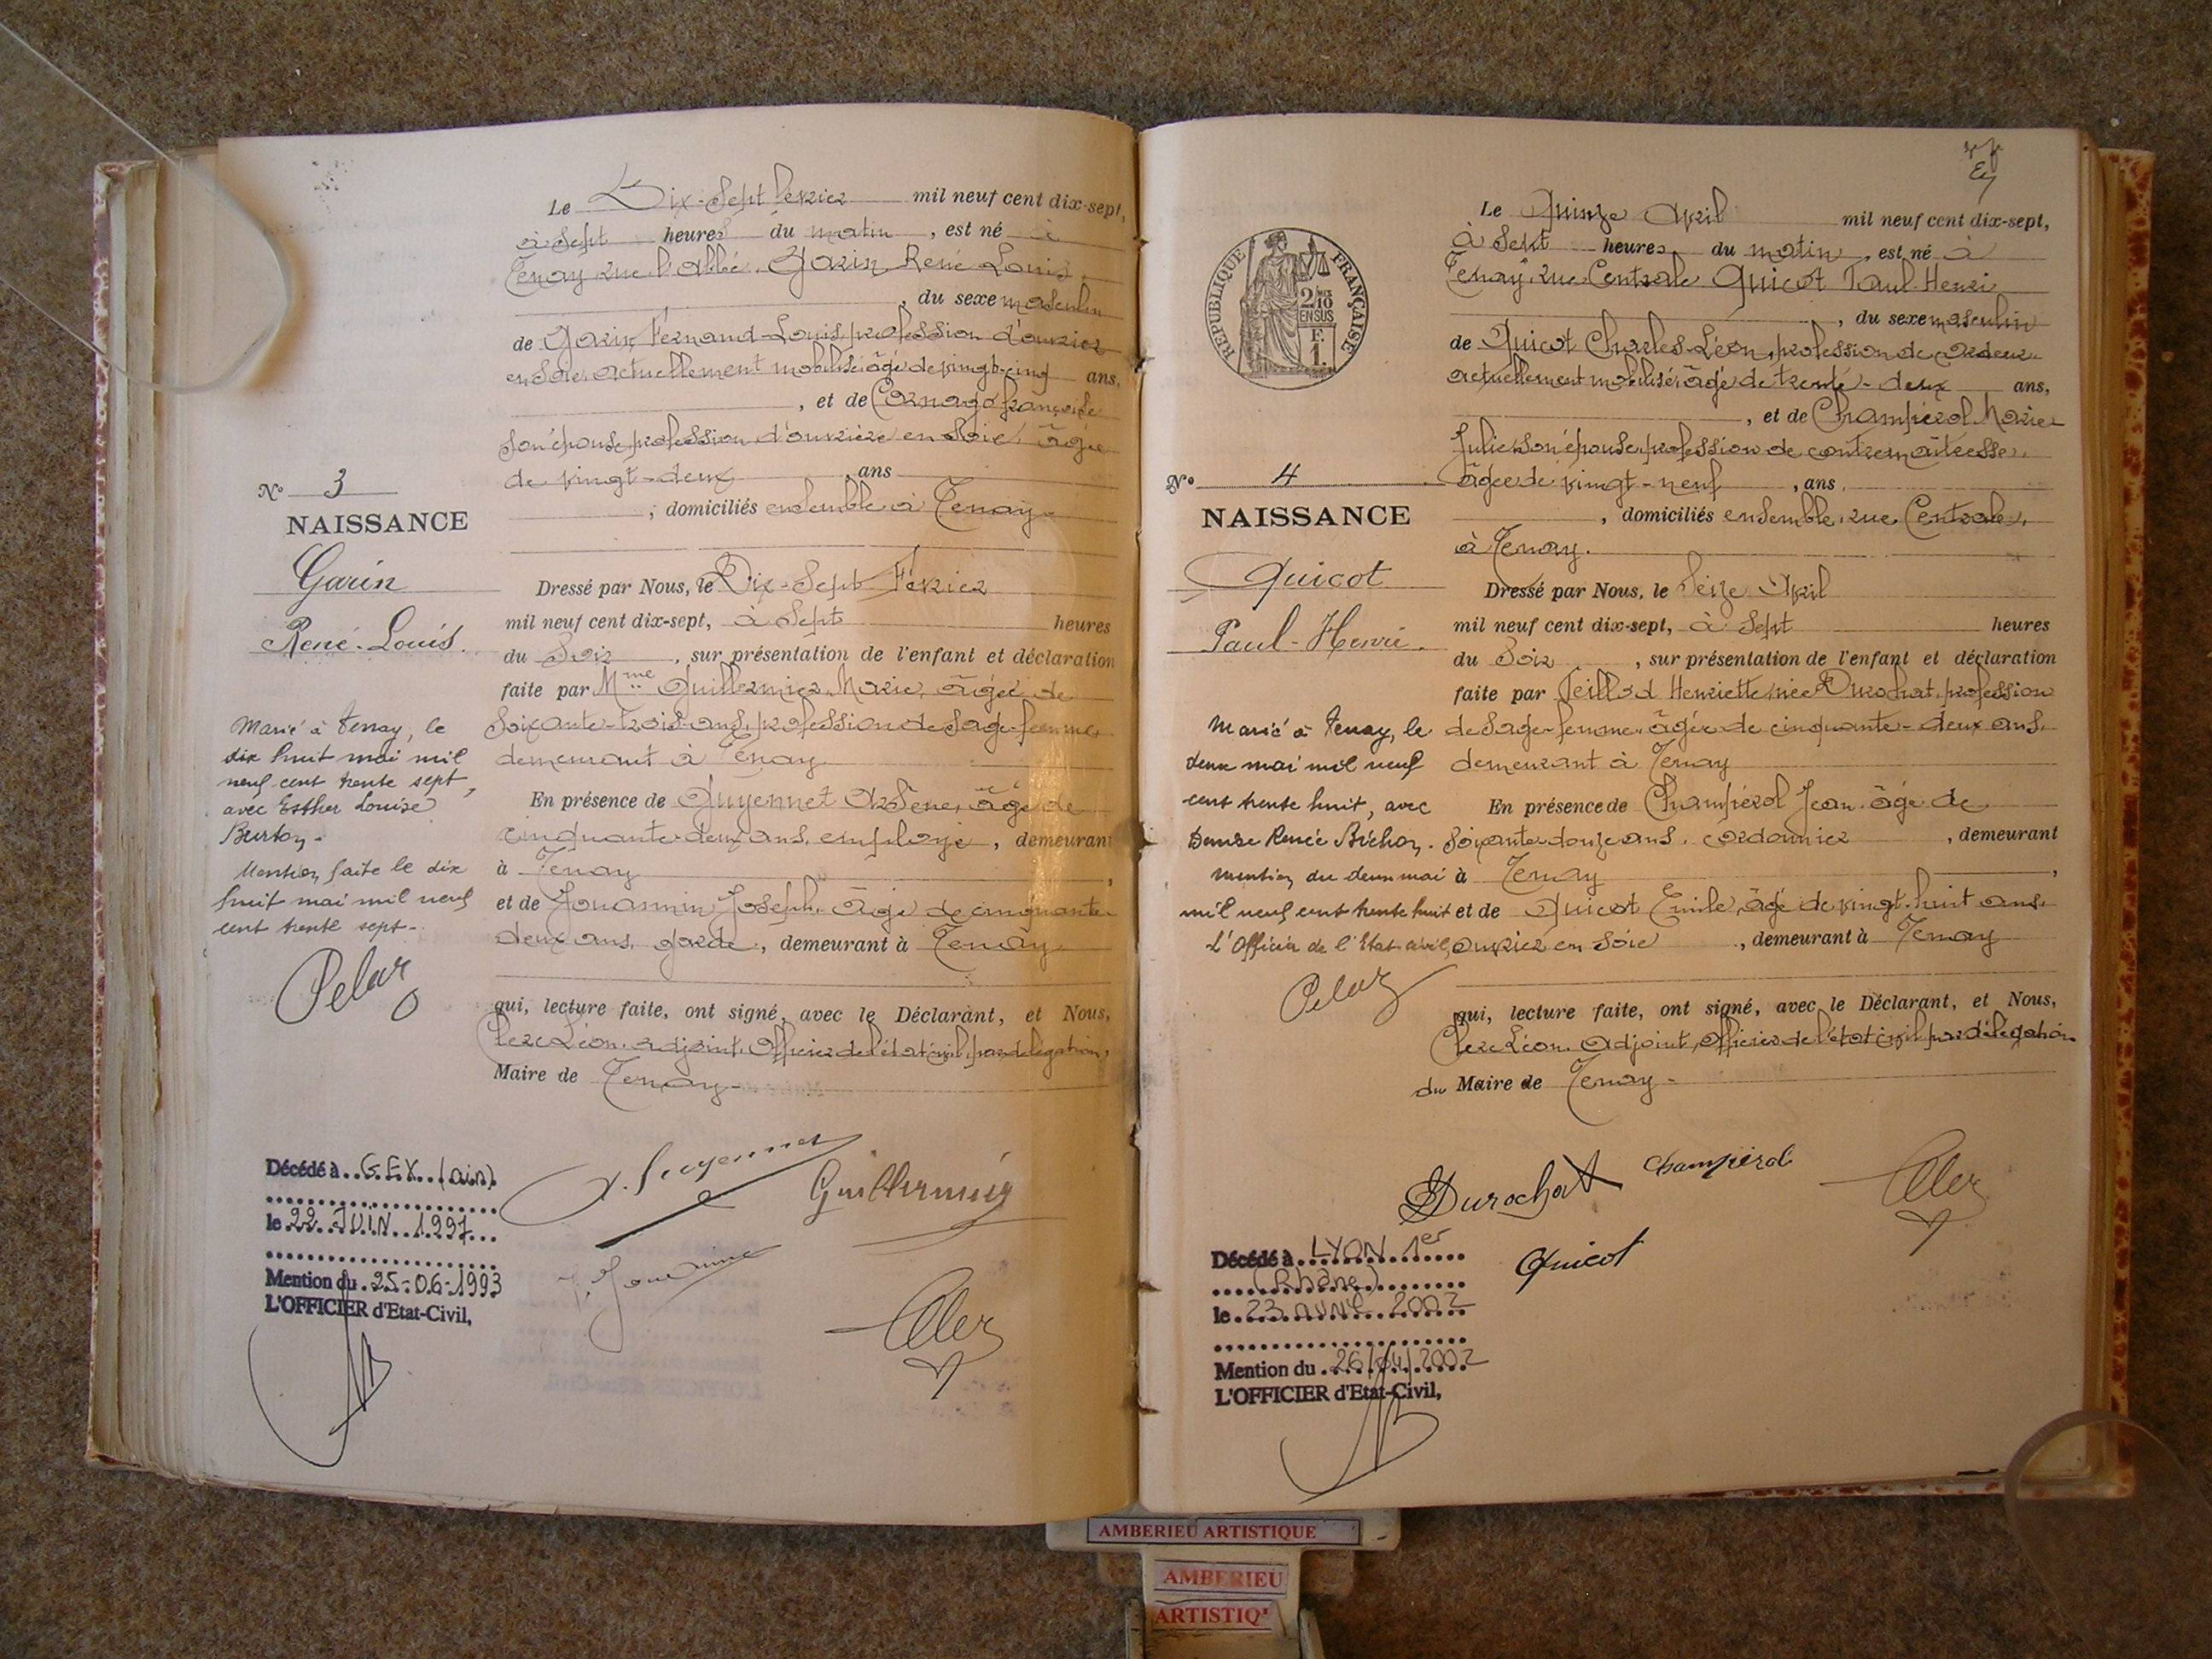 Le Dix-Sept Février mil neuf cent dix-sept,
à Sept heures du matin, est né à
Tenay, rue l'abbé, Garin René Louis,
, du sexe masculin
de Garin Fernand Louis, profession d'ouvrier
en soie, actuellement mobilisé, âgé de vingt-cinq ans,
, et de Cornago françoise
son épouse, profession d'ouvrière en soie, âgée
de vingt-deux ans
, domiciliés ensemble à Tenay
N° 3
NAISSANCE
Garin
René-Louis.
Dressé par Nous, le Dix-Sept Février
mil neuf cent dix-sept, à Sept heures
du Soir, sur présentation de l'enfant et déclaration
faite par Mme Guillermier, Marie, âgée de
soixante-trois ans, profession de sage-femme,
demeurant à Tenay
En présence de Guyennet Arsène, âgé de
cinquante-deux ans, employé, demeurant
à Tenay,
et de Jouannin Joseph, âgé de cinquante-
deux ans, garde, demeurant à Tenay
qui, lecture faite, ont signé, avec le Déclarant, et Nous,
Clerc Léon, adjoint, Officier de l'état civil, par délégation,
Maire de Tenay-
Marié à Tenay, le
dix huit mai mil
neuf cent trente sept,
avec Esther Louise
Burton.
Mention faite le dix
huit mai mil neuf
cent trente sept-
Pelaz
Décédé à GEX (ain)
le 22 JUIN 1997
Mention du 25-06-1993
L'OFFICIER d'Etat-Civil,
Guillermier
RÉPUBLIQUE FRANÇAISE
2/10
EN SUS
F.
1.
Le Quinze Avril mil neuf cent dix-sept,
à Sept heures du matin, est né à
Tenay, rue Centrale Quicot Paul Henri
, du sexe masculin
de Quicot Charles-Léon, profession de cardeur
actuellement mobilisé, âgé de trente-deux ans,
, et de Champérol Marie
Julie son épouse, profession de contremaîtresse,
âgée de vingt-neuf, ans
, domiciliés ensemble, rue Centrale,
à Tenay.
N° 4
NAISSANCE
Quicot
Paul-Henri.
Dressé par Nous, le Seize Avril
mil neuf cent dix-sept, à Sept heures
du Soir, sur présentation de l'enfant et déclaration
faite par Henriette née Durochat, profession
de sage-femme, âgée de cinquante-deux ans,
demeurant à Tenay
En présence de Champérol Jean, âgé de
soixante-douze ans, cordonnier, demeurant
à Tenay,
et de Quicot Emile, âgé de vingt-huit ans,
ouvrier en soie, demeurant à Tenay
qui, lecture faite, ont signé, avec le Déclarant, et Nous,
Clerc Léon, adjoint, officier de l'état civil par délégation
du Maire de Tenay-
Marié à Tenay, le
deux mai mil neuf
cent trente huit, avec
Denise Renée Bichon.
Mention du deux mai
mil neuf cent trente huit
L'Officier de l'Etat civil,
Pelaz
Durochat
Champérol
Clerc
Quicot
Décédé à LYON 1er
(Rhône)
le 23 avril 2002
Mention du 26/04/2002
L'OFFICIER d'Etat-Civil,
AMBERIEU ARTISTIQUE
AMBERIEU
ARTISTIQ